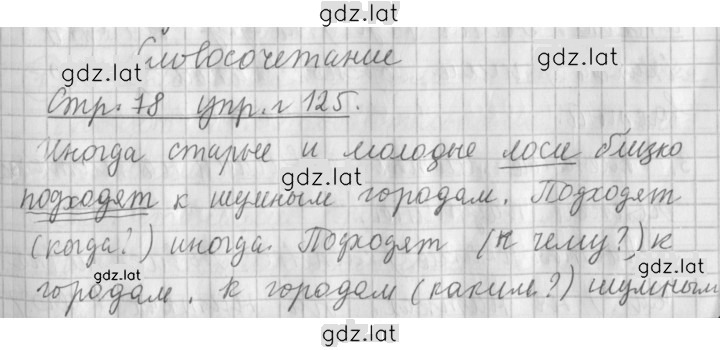 gdz.lat
Словосочетание
gdz.lat
gdz.lat
Стр. 78 упр. 125.
gdz.lat
Иногда старые и молодые лоси близко
gdz.lat
подходят к шумным городам. Подходят
(когда?) иногда. Подходят (к чему?) к
gdz.lat
gdz.lat
городам, к городам (каким?) шумным
gdz.lat